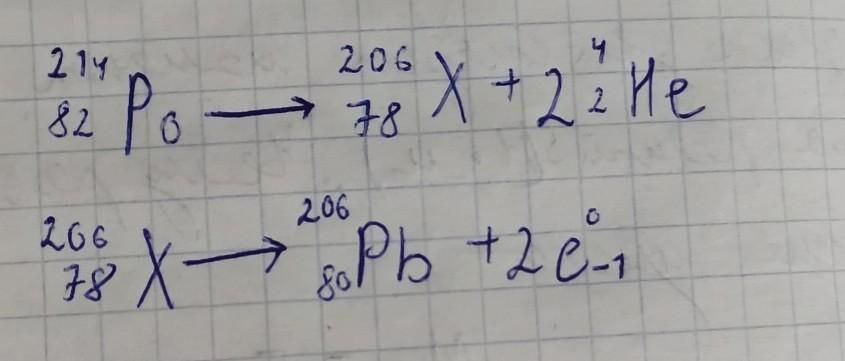 ²¹⁴₈₂Po → ²⁰⁶₇₈X + 2⁴₂He
²⁰⁶₇₈X → ²⁰⁶₈₀Pb + 2e⁰₋₁